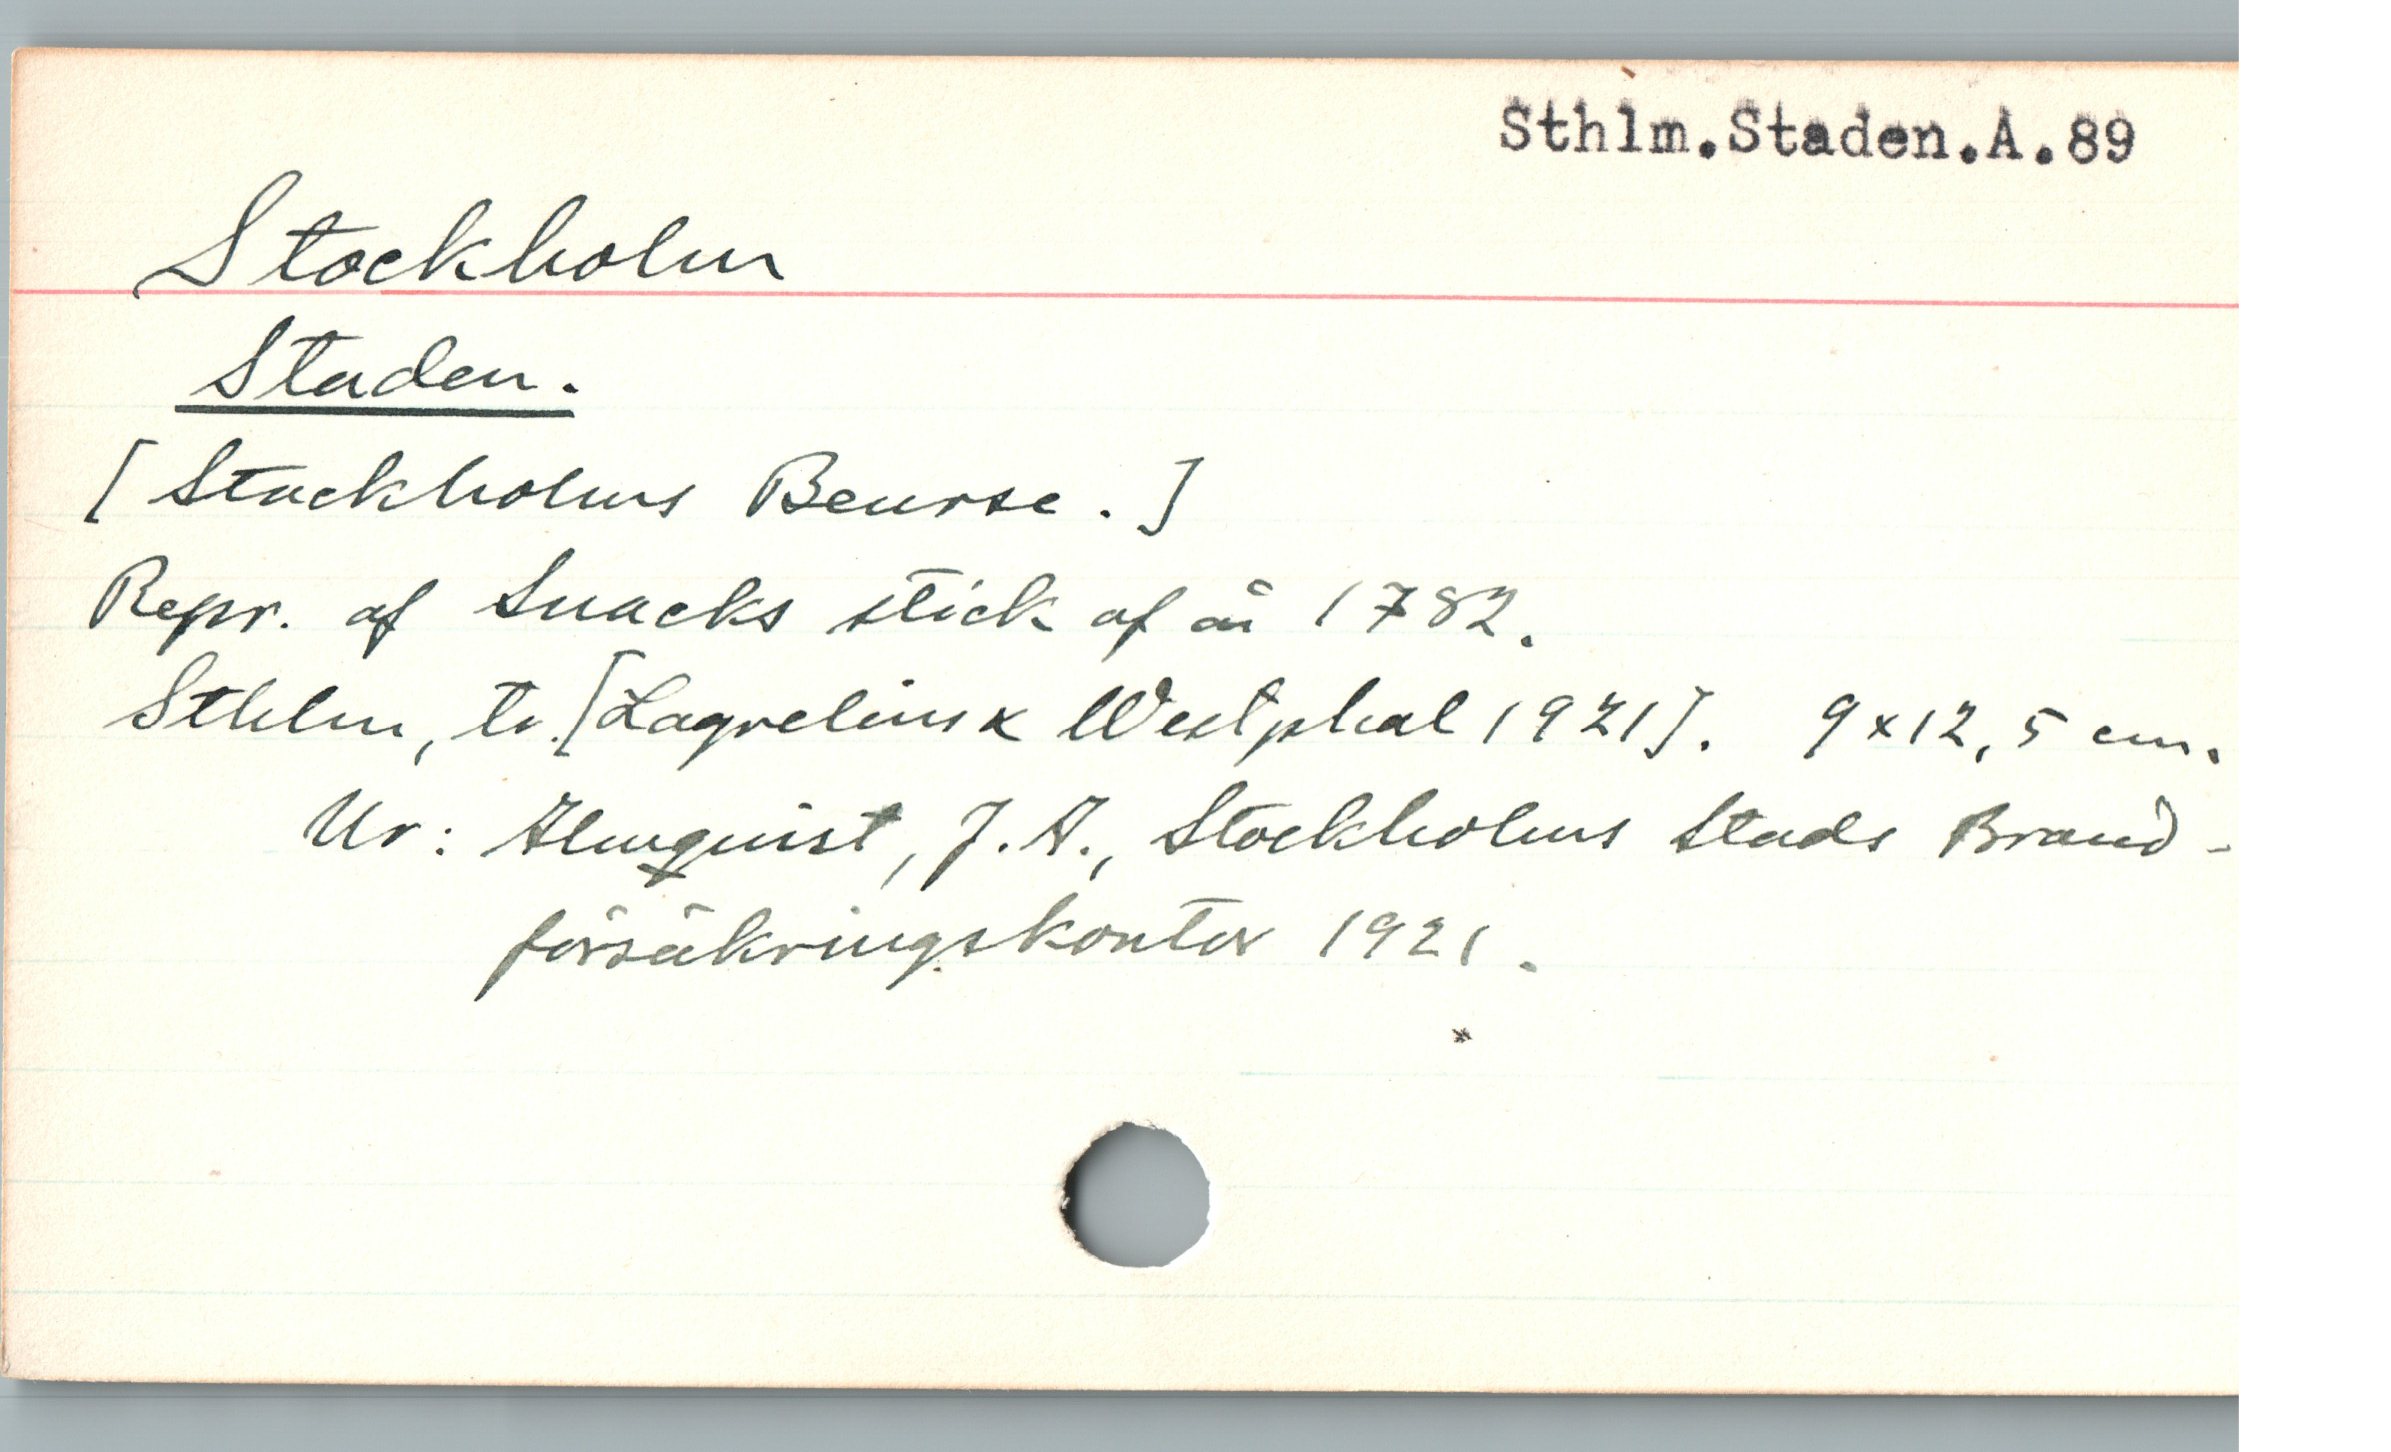 Sthlm.Staden.A.89
Stockholm
Staden.
[Stockholms Beurse.]
Repr. af Snacks stick af år 1782.
Sthlm, tr. [Lagrelius & Westphal 1921]. 9x12,5 cm.
Ur: Almquist, J.A., Stockholms Stads Brand-
försäkringskontor 1921.